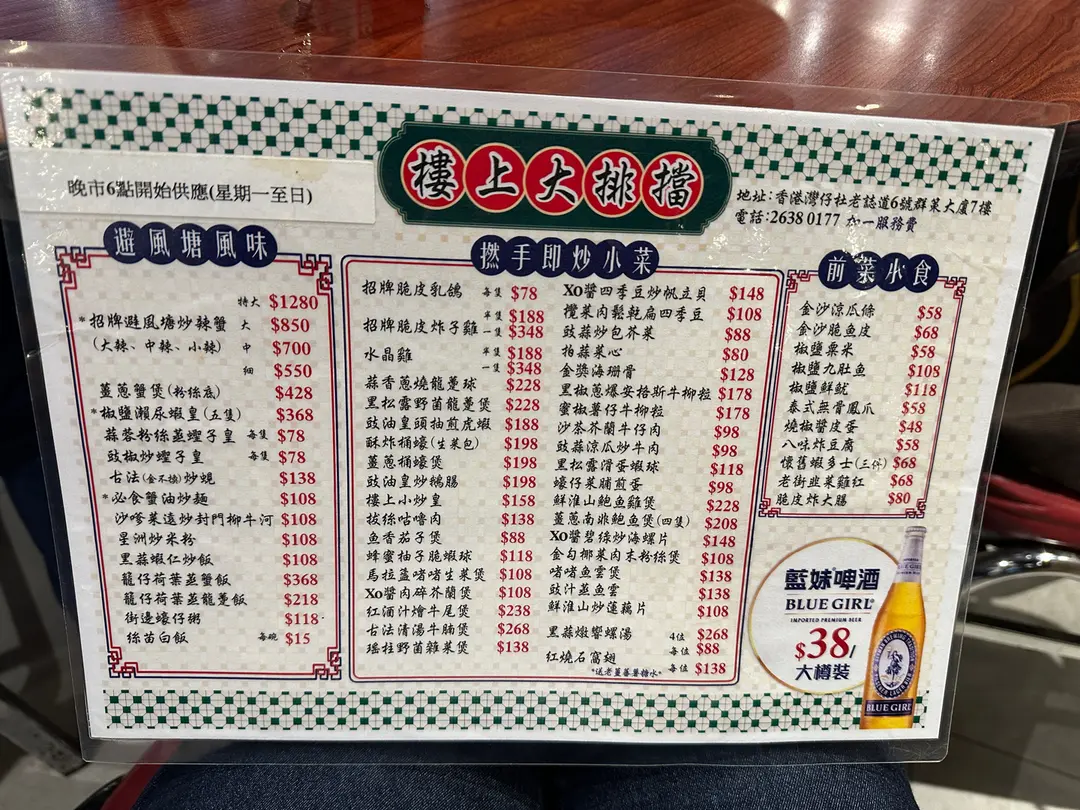 樓上大排擋
晚市6點開始供應(星期一至日)
地址:香港灣仔杜老誌道6號群菜大廈7樓
電話:2638 0177 加一服務費
避風塘風味
特大 $1280
*招牌避風塘炒辣蟹 大 $850
(大辣、中辣、小辣) 中 $700
細 $550
薑蔥蟹煲(粉絲底) $428
*椒鹽瀨尿蝦皇(五隻) $368
蒜蓉粉絲蒸蟶子皇 每隻 $78
豉椒炒蟶子皇 每隻 $78
古法(金不換)炒蜆 $138
*必食蟹油炒麵 $108
沙嗲菜遠炒封門柳牛河 $108
星洲炒米粉 $108
黑蒜蝦仁炒飯 $108
籠仔荷葉蒸蟹飯 $368
籠仔荷葉蒸龍躉飯 $218
街邊蠔仔粥 $118
絲苗白飯 每碗 $15
撚手即炒小菜
招牌脆皮乳鴿 每隻 $78
招牌脆皮炸子雞 半隻 $188
一隻 $348
水晶雞 半隻 $188
一隻 $348
蒜香蔥燒龍躉球 $228
黑松露野菌龍躉煲 $228
豉油皇頭抽煎虎蝦 $188
酥炸桶蠔(生菜包) $198
薑蔥桶蠔煲 $198
豉油皇炒鵝腸 $198
樓上小炒皇 $158
拔絲咕嚕肉 $138
魚香茄子煲 $88
蜂蜜柚子脆蝦球 $118
馬拉盞啫啫生菜煲 $108
XO醬肉碎芥蘭煲 $108
紅酒汁燴牛尾煲 $238
古法清湯牛腩煲 $268
瑤柱野菌雜菜煲 $138
XO醬四季豆炒帆立貝 $148
欖菜肉鬆乾扁四季豆 $108
豉蒜炒包芥菜 $88
拍蒜菜心 $80
金獎海珊骨 $128
黑椒蔥爆安格斯牛柳粒 $178
蜜椒薯仔牛柳粒 $178
沙茶芥蘭牛仔肉 $98
豉蒜涼瓜炒牛肉 $98
黑松露滑蛋蝦球 $118
蠔仔菜脯煎蛋 $98
鮮淮山鮑魚雞煲 $228
薑蔥南非鮑魚煲(四隻) $208
XO醬碧綠炒海螺片 $148
金勾椰菜肉末粉絲煲 $108
啫啫魚雲煲 $138
豉汁蒸魚雲 $138
鮮淮山炒蓮藕片 $108
黑蒜燉響螺湯 4位 $268
每位 $88
紅燒石窩翅 每位 $138
*送老薑蕃薯糖水*
前菜小食
金沙涼瓜條 $58
金沙脆魚皮 $68
椒鹽粟米 $58
椒鹽九肚魚 $108
椒鹽鮮魷 $118
泰式無骨鳳爪 $58
燒椒醬皮蛋 $48
八味炸豆腐 $58
懷舊蝦多士(三件) $68
老街韭菜雞紅 $68
脆皮炸大腸 $80
藍妹啤酒
BLUE GIRL
IMPORTED PREMIUM BEER
$38/
大樽裝
BLUE GIRL